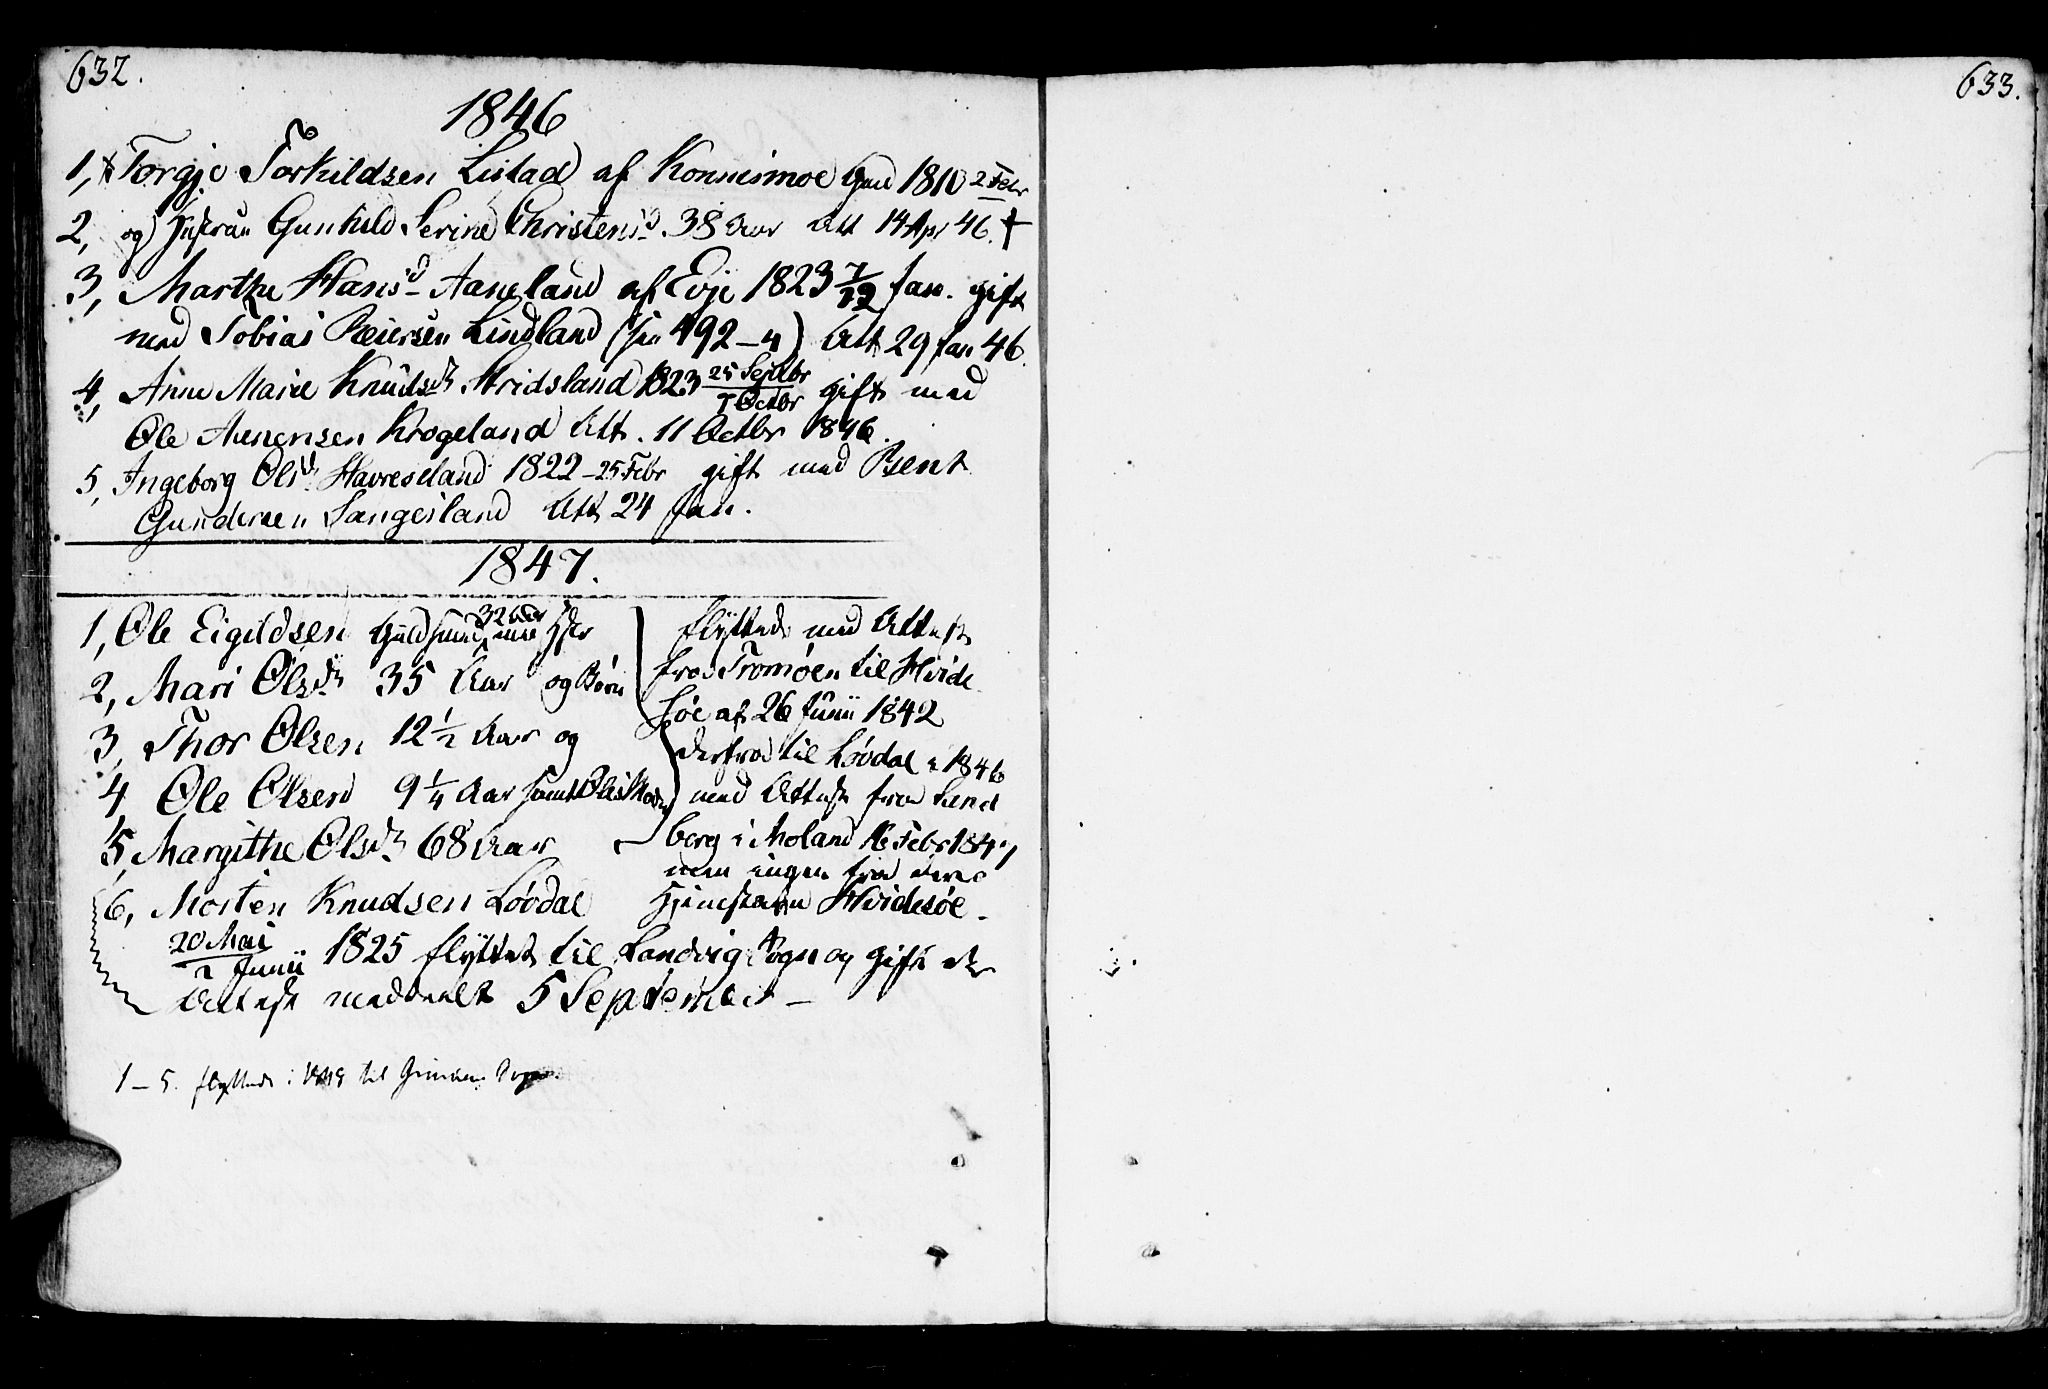 632.
1846
1, Torgje Torkildsen Listad af Konnismoe 1810 2 Febr
2, og Hustrue Gunhild Serine Christensd 38 Aar Att 14 Apr 46. †
3, Marthe Hansd Aaneland af Evje 1823 7/12 Jan. gift
med Tobias Reiersen Lindland (see 492-4) Att 29 Jan 46.
4, Anne Marie Knudsdr Stridsland 1823 25 Septbr / 7 Octbr gift med
Ole Aanensen Krogeland Att. 11 Octbr 1846.
5, Ingeborg Olsdr Havreseland 1822 - 25 Febr gift med Bent
Gundersen Sangesland Att 24 Jan.
1847.
1, Ole Eigildsen Guldsmed 32 Aar
2, Mari Olsdr 35 Aar og Børn
3, Thor Olsen 12 1/2 Aar og
4 Ole Olsen 9 1/4 Aar samt Oles Moder
5, Margithe Olsdr 68 Aar
flyttede med Attest
fra Tromøen til Hvide
søe af 26 Junii 1842
derfra til Løvdal i 1846
med Attest fra Lund
berg i Moland 16 Febr 1847
men ingen fra
Hjemstavn Hvidesøe.
6, Morten Knudsen Løvdal
20 Mai / 2 Junii 1825 flyttet til Landvig Sogn og gift der
Attest meddeelt 5 September –
1 – 5. flyttede i til
633.